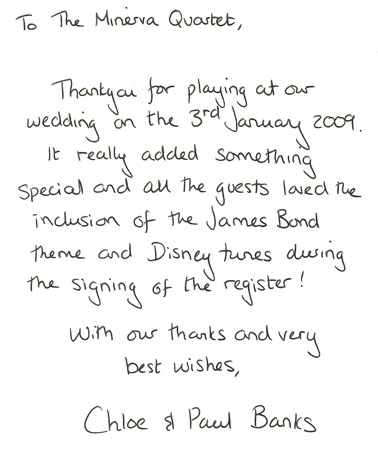 To The Minerva Quartet,
Thankyou for playing at our
wedding on the 3rd January 2009.
It really added something
special and all the guests loved the
inclusion of the James Bond
theme and Disney tunes during
the signing of the register!
With our thanks and very
best wishes,
Chloe & Paul Banks